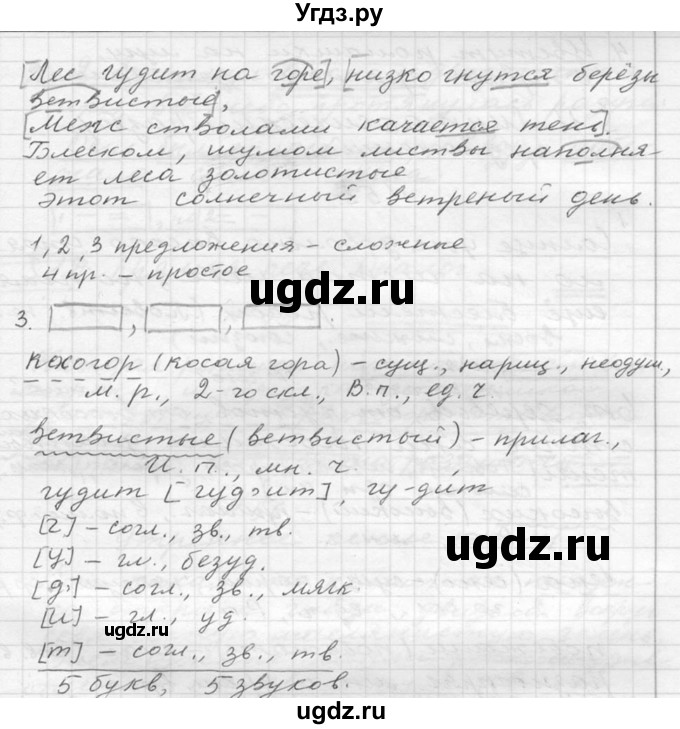 Угдз.ру
[Лес гудит на горе], [низко гнутся берёзы
ветвистые],
[Меж стволами качается тень].
Блеском, шумом листвы наполня-
ет леса золотистые
этот солнечный ветреный день.
1, 2, 3 предложения – сложные
4 пр. – простое
ugdz.ru
3. [ ], [ ], [ ].
косогор (косая гора) – сущ., нариц., неодуш.,
м. р., 2-го скл., В. п., ед. ч.
ветвистые (ветвистый) – прилаг.,
И. п., мн. ч.
гудит [гуд'ит], гу-ди́т
[г] – согл., зв., тв.
[у] – гл., безуд.
ugdz.ru
[д'] – согл., зв., мягк.
[и] – гл., уд.
ugdz.ru
[т] – согл., зв., тв.
5 букв, 5 звуков.
ugdz.ru